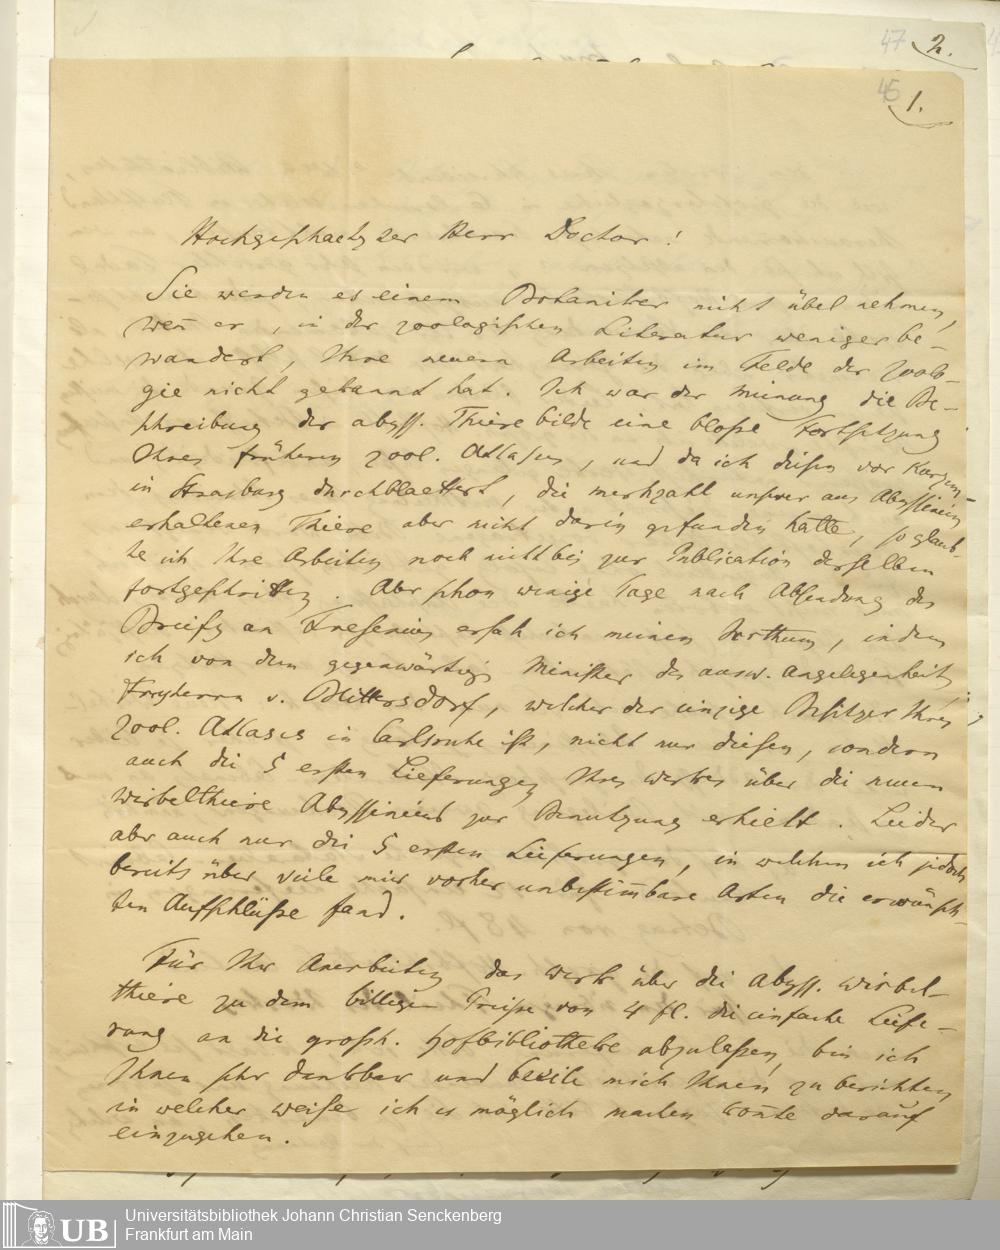 47 2.
45 1.
Hochgeschaetzter Herr Doctor!
Sie werden es einem Botaniker nicht übel nehmen,
wen̄ er, in der zoologischen Literatur weniger be-
wandert, Ihre neuern Arbeiten im Felde der Zoolo-
gie nicht gekannt hat. Ich war der Meinung die Be-
schreibung der abyss. Thiere bilde eine bloße Fortsetzung
Ihres früheren zool. Atlasses, und da ich diesen vor Kurzem
in Strasburg durchblaettert, die Mehrzahl unsrer aus Abyssinien
erhaltenen Thiere aber nicht darin gefunden hatte, so glaub-
te ich Ihre Arbeiten noch nicht bis zur Publication derselben
fortgeschritten. Aber schon wenige Tage nach Absendung des
Briefes an Fresenius ersah ich meinen Irrthum, indem
ich von dem gegenwärtigen Minister der ausw. Angelegenheiten,
Freyherrn v. Blittersdorf, welcher der einzige Besitzer Ihres
zool. Atlases in Carlsruhe ist, nicht nur diesen, sondern
auch die 5 ersten Lieferungen Ihres Werkes über die neuen
Wirbelthiere Abyssiniens zur Benutzung erhielt. Leider
aber auch nur die 5 ersten Lieferungen, in welchen ich jedoch
bereits über viele mir vorher unbestim̄bare Arten die erwünsch-
ten Aufschlüße fand.
Für Ihr Anerbieten das Werk über die Abyss. Wirbel-
thiere zu dem billigen Preise von 4 fl. die einfache Liefe-
rung an die grosh. Hofbibliotheke abzulaßen, bin ich
Ihnen sehr dankbar und beeile mich Ihnen zu berichten
in welcher Weise ich es möglich machen kon̄te darauf
einzugehen.
UB Universitätsbibliothek Johann Christian Senckenberg
Frankfurt am Main